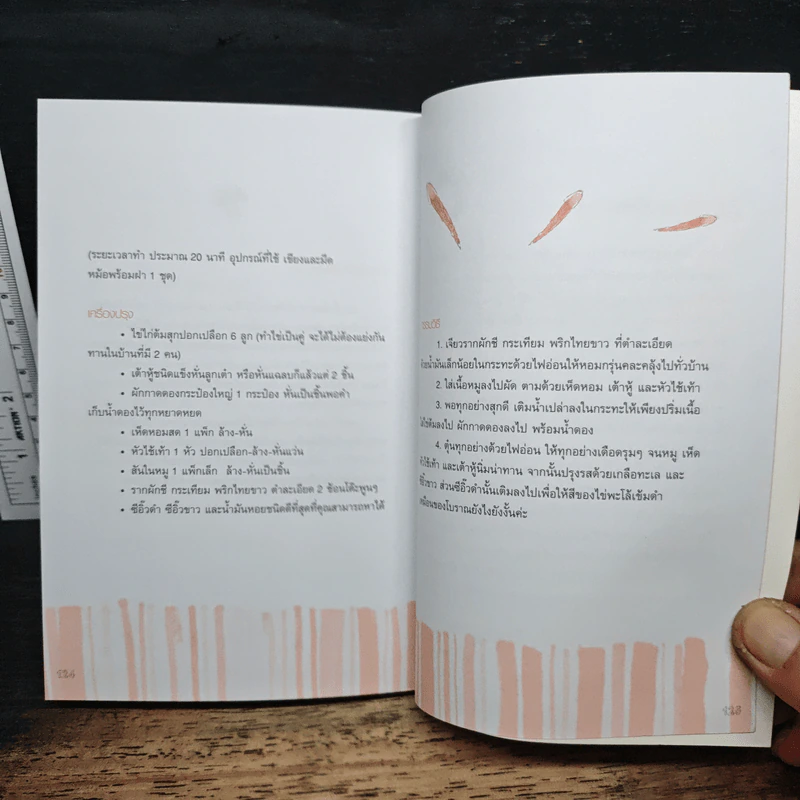 (ระยะเวลาทำ ประมาณ 20 นาที อุปกรณ์ที่ใช้ เขียงและมีด
หม้อพร้อมฝา 1 ชุด)
เครื่องปรุง
• ไข่ไก่ต้มสุกปอกเปลือก 6 ลูก (ทำไข่เป็นคู่ จะได้ไม่ต้องแย่งกัน
ทานในบ้านที่มี 2 คน)
• เต้าหู้ชนิดแข็งหั่นลูกเต๋า หรือหั่นแฉลบก็แล้วแต่ 2 ชิ้น
• ผักกาดดองกระป๋องใหญ่ 1 กระป๋อง หั่นเป็นชิ้นพอคำ
เก็บน้ำดองไว้ทุกหยาดหยด
• เห็ดหอมสด 1 แพ็ก ล้าง-หั่น
• หัวไช้เท้า 1 หัว ปอกเปลือก-ล้าง-หั่นแว่น
• สันในหมู 1 แพ็กเล็ก ล้าง-หั่นเป็นชิ้น
• รากผักชี กระเทียม พริกไทยขาว ตำละเอียด 2 ช้อนโต๊ะพูนๆ
• ซีอิ๊วดำ ซีอิ๊วขาว และน้ำมันหอยชนิดดีที่สุดที่คุณสามารถหาได้
124
1. เจียวรากผักชี กระเทียม พริกไทยขาว ที่ตำละเอียด
ด้วยน้ำมันเล็กน้อยในกระทะด้วยไฟอ่อนให้หอมกรุ่นคละคลุ้งไปทั่วบ้าน
2. ใส่เนื้อหมูลงไปผัด ตามด้วยเห็ดหอม เต้าหู้ และหัวไช้เท้า
3. พอทุกอย่างสุกดี เติมน้ำเปล่าลงในกระทะให้เพียงปริ่มเนื้อ
ใส่ไข่ต้มลงไป ผักกาดดองลงไป พร้อมน้ำดอง
4. ตุ๋นทุกอย่างด้วยไฟอ่อน ให้ทุกอย่างเดือดรุมๆ จนหมู เห็ด
หัวไช้เท้า และเต้าหู้นิ่มน่าทาน จากนั้นปรุงรสด้วยเกลือทะเล และ
ซีอิ๊วขาว ส่วนซีอิ๊วดำนั้นเติมลงไปเพื่อให้สีของไข่พะโล้เข้มดำ
เหมือนของโบราณยังไงยังงั้นค่ะ